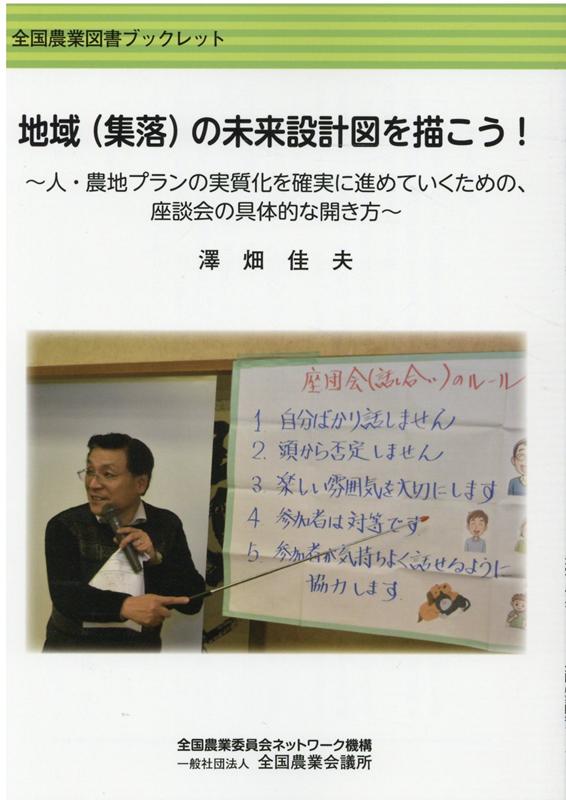 全国農業図書ブックレット
地域（集落）の未来設計図を描こう！
～人・農地プランの実質化を確実に進めていくための、
座談会の具体的な開き方～
澤畑佳夫
座団会(話し合い)のルール
1 自分ばかり話しません
2. 頭から否定しません
3 楽しい雰囲気を大切にします
4 参加者は対等です
5. 参加者が気持ちよく話せるように
協力します.
全国農業委員会ネットワーク機構
一般社団法人 全国農業会議所